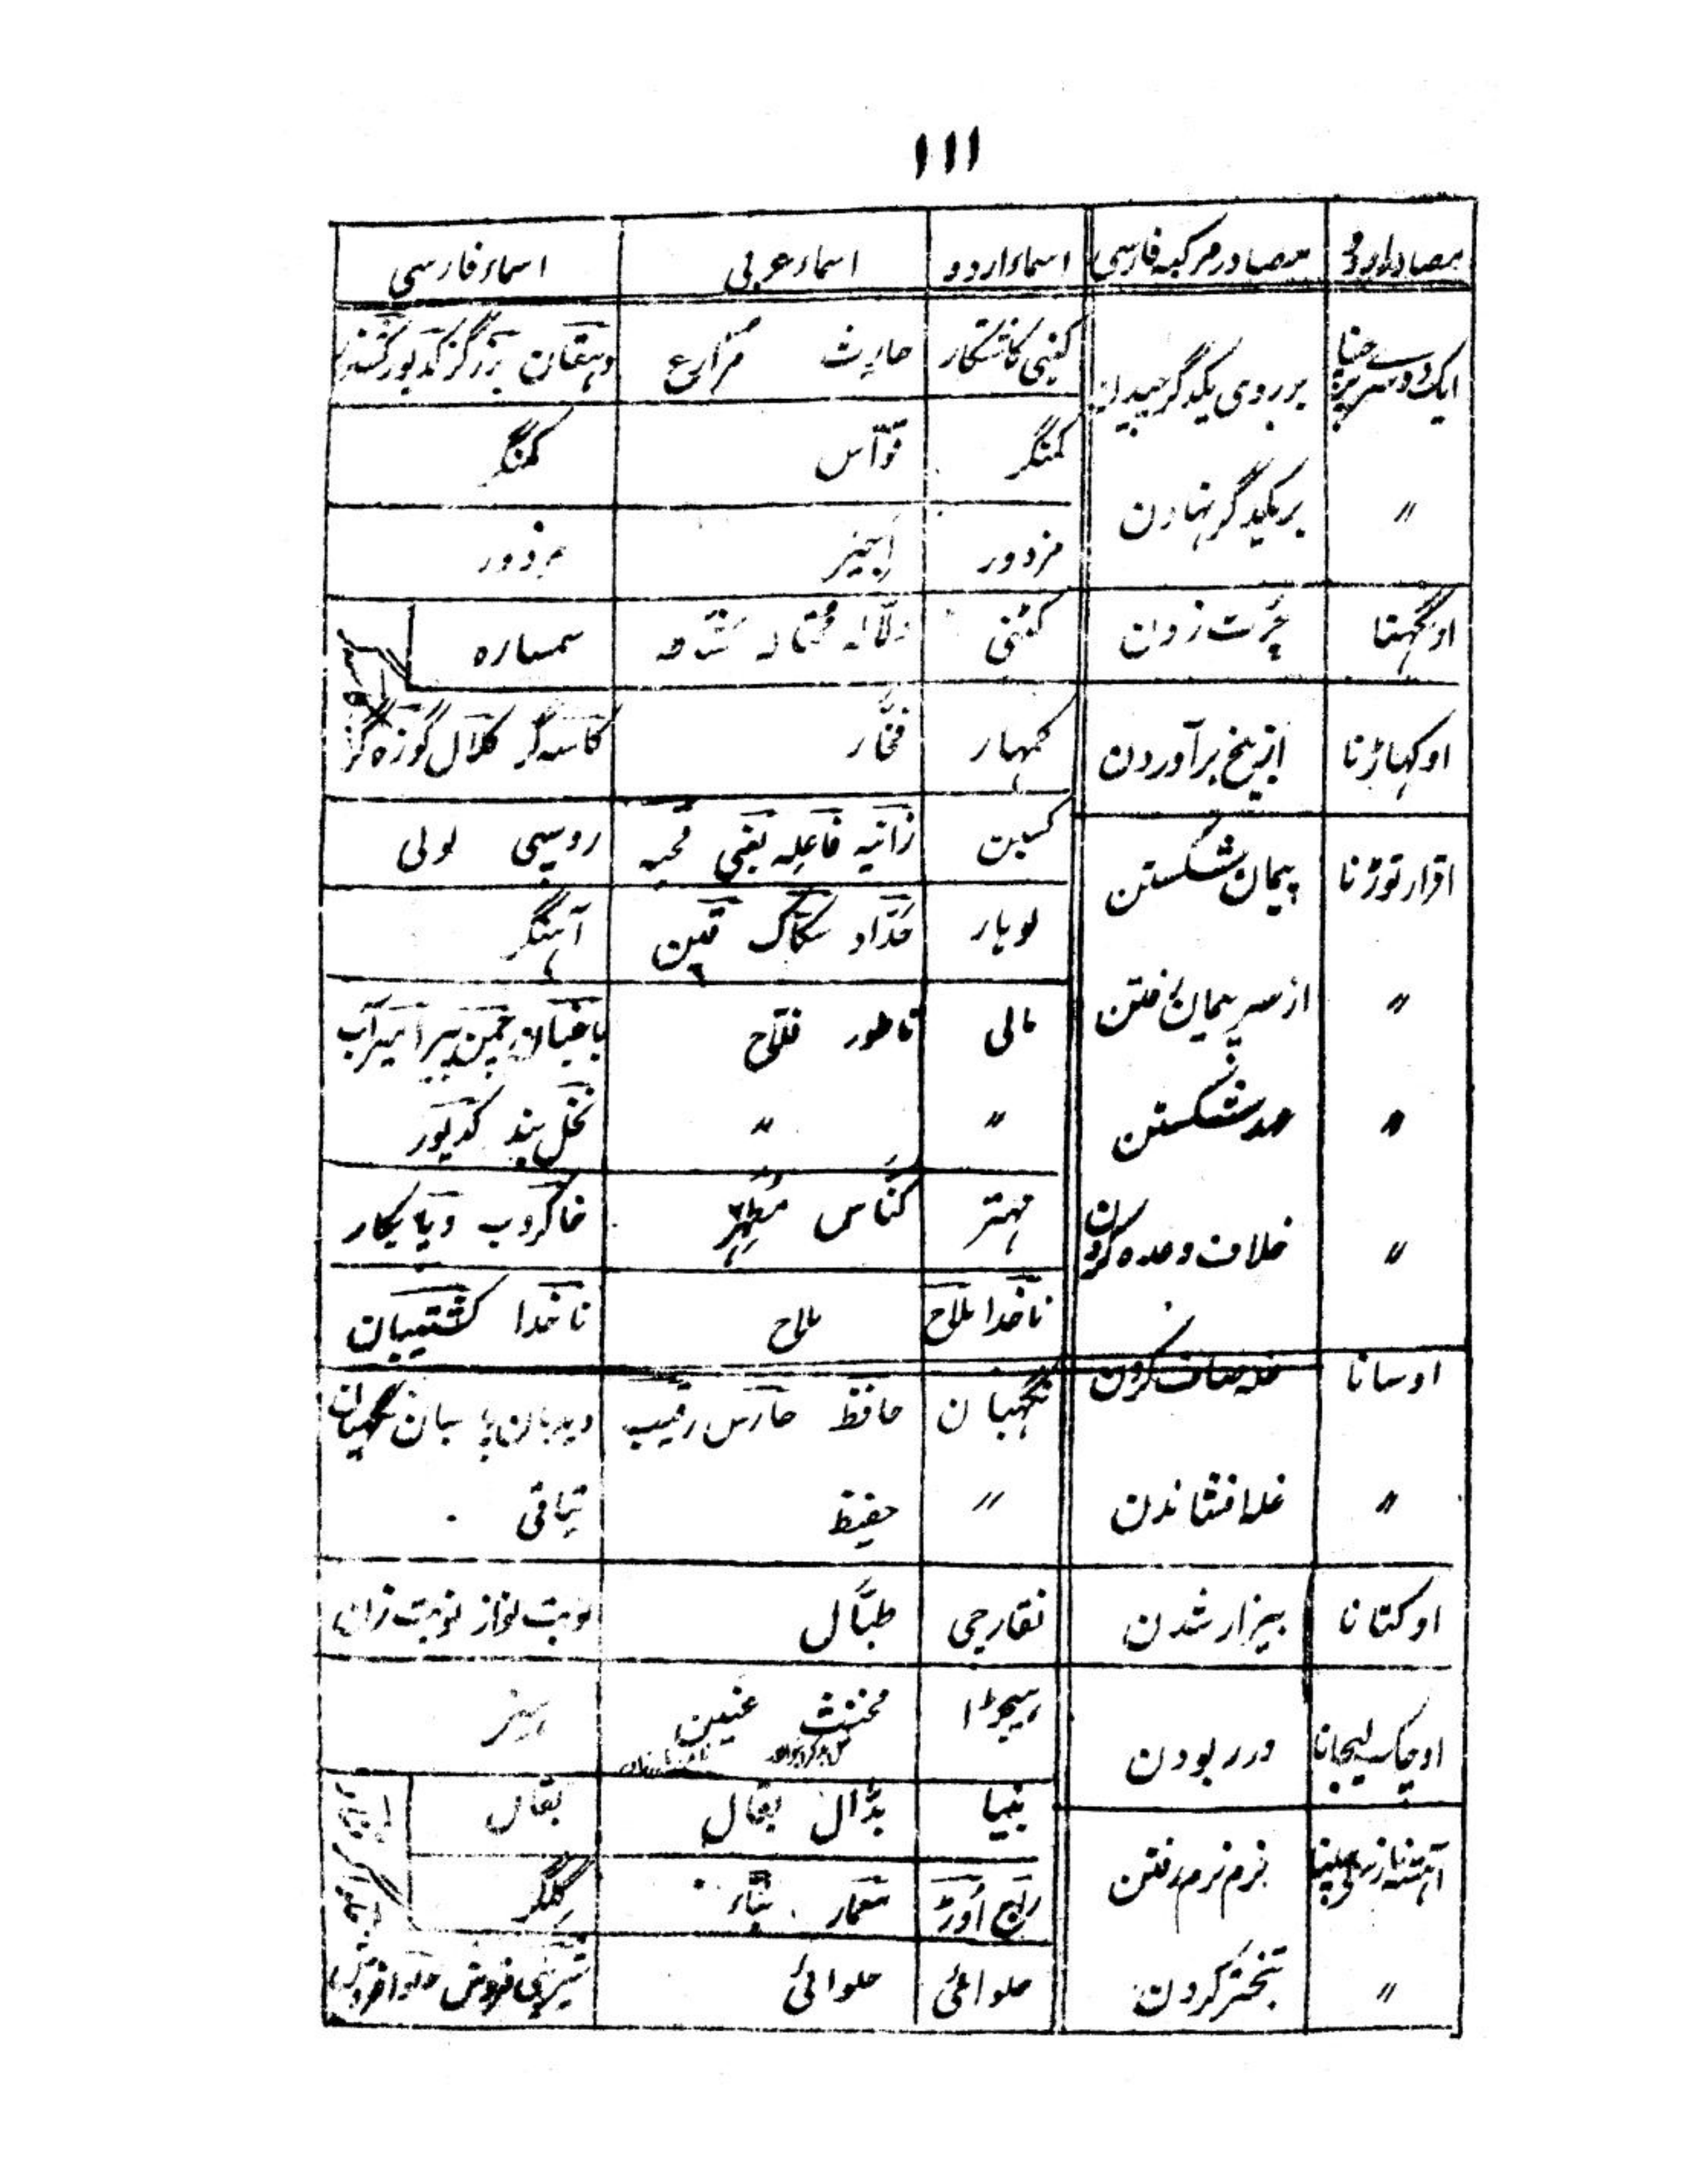 ۱۱۱
مصادر اردو مصادر مرکبہ فارسی اسماء اردو اسماء عربی اسماء فارسی
بر روی یکدگر چیدن کنبی کاشتکار حارث مزارع دہقان برزگر کدیور
کمنگر قوّاس کمنگر
〃 بر یکدگر نہادن مزدور اَجیر مزدور
اونگہنا چُرت زدن کٹنی دلّالہ محتالہ سمسارہ
اوکہاڑنا از بیخ برآوردن کمہار فخّار کاسہ گر کلال کوزہ گر
اقرار توڑنا پیمان شکستن کسبن زانیہ فاعلہ بغی قحبہ روسپی لولی
لوہار حدّاد سکّاک قین آہنگر
〃 از سر پیمان رفتن مالی ناطور فلّاح باغبان چمن پیرا میراب
〃 عہد شکستن 〃 〃 نخل بند کدیور
〃 خلاف وعدہ کردن مہتر کنّاس مُطہّر خاکروب
ناخدا ملاح ملاح ناخدا کشتیبان
اوسانا غلہ صاف کردن نگہبان حافظ حارس رقیب دیدبان پاسبان نگہبان
〃 غلہ افشاندن 〃 حفیظ یتاقی
اوکتانا بیزار شدن نقارچی طبّال نوبت نواز نوبت زن
اوچک لیجانا در ربودن ہیجڑا مخنث عنین
بنیا بدّال بقال بقال
آہستہ نازسے چلنا نرم نرم رفتن راج اوڑ معمار بنّاء گلگر
〃 تبختر کردن حلوائی حلوائی شیرینی فروش حلوا فروش